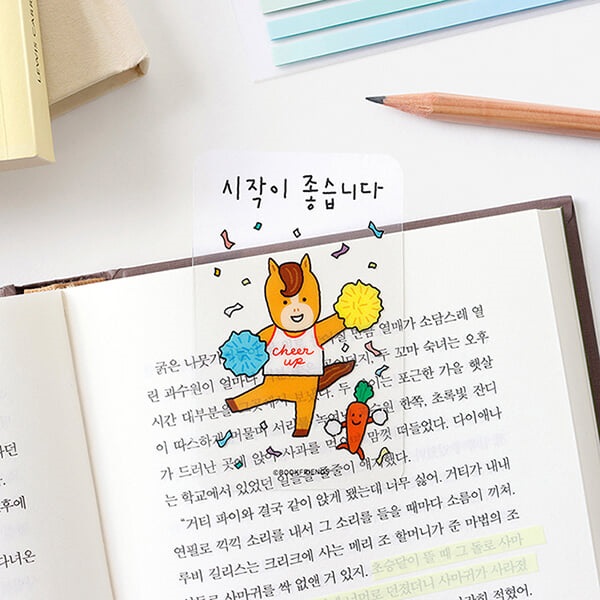 LEWIS CARR
시작이 좋습니다
cheer up
©BOOKFRIENDS
굵은 나뭇가 열매가 소담스레 열
린 과수원이 얼마나 두 꼬마 숙녀는 오후
시간 대부분을 포근한 가을 햇살
이 따스하게 머물며 한쪽, 초록빛 잔디
가 드러난 곳에 앉아 사과를 먹으 맘껏 떠들었다. 다이애나
는 학교에서 있었던 일들을 얘기했다.
“거티 파이와 결국 같이 앉게 됐는데 너무 싫어. 거티가 내내
연필로 끽끽 소리를 내서 그 소리를 들을 때마다 소름이 끼쳐.
루비 길리스는 크리크에 사는 메리 조 할머니가 준 마법의 조
사마귀를 싹 없앤 거 있지. 초승달이 뜰 때 그 돌로 사마
던졌더니 사마귀가 사라졌
적혔어.
다면
후에
다녀온